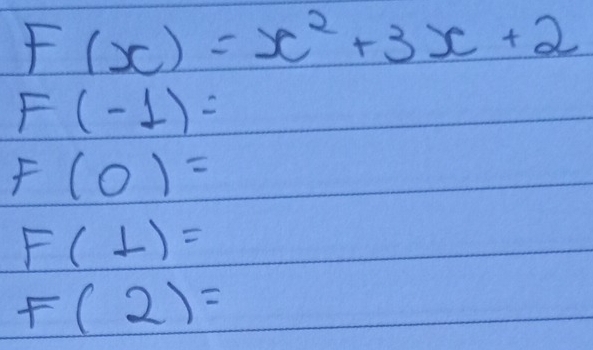 F(x) = x² + 3x + 2
F(-1) =
F(0) =
F(1) =
F(2) =